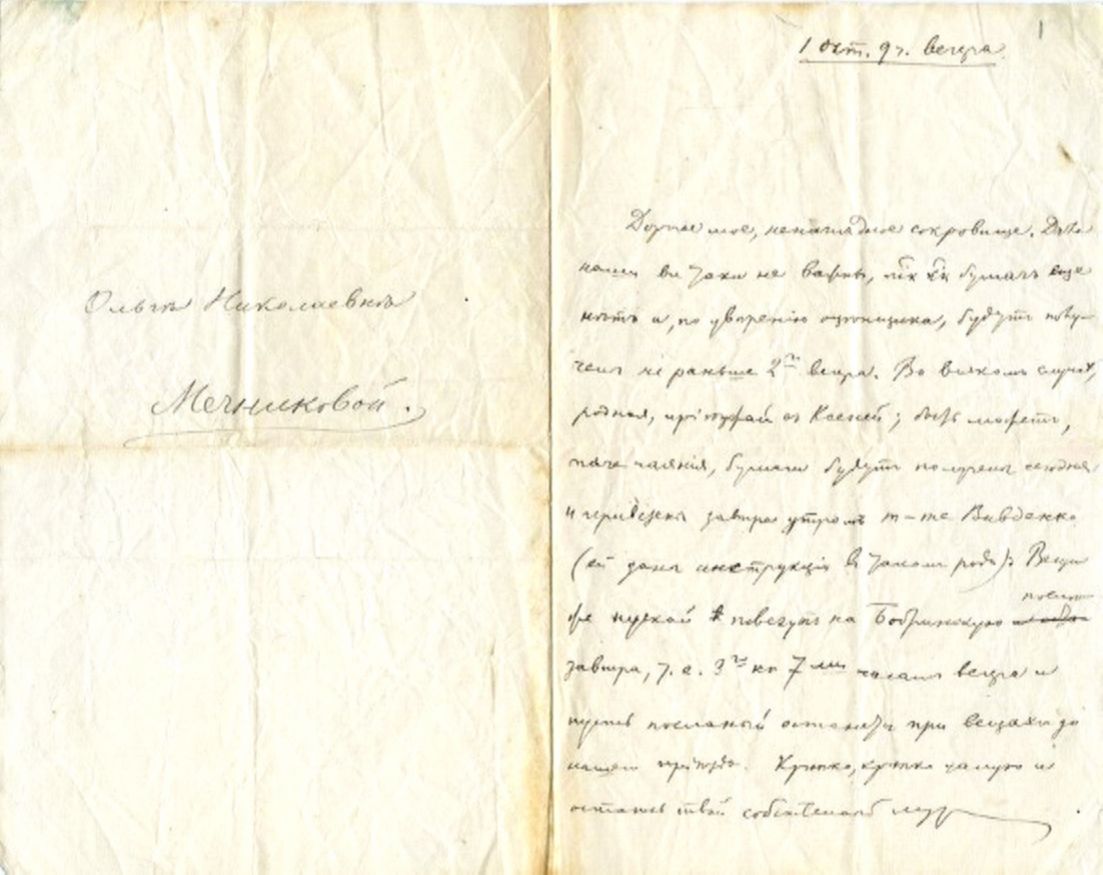 Ольгѣ Николаевнѣ
Мечниковой.
1
1 Окт. 9 ч. вечера.
Дорогое мое, ненаглядное сокровище. Дѣла
наши все таки не важны, т. к. бумагъ еще
нѣтъ и, по увѣренію, будутъ полу-
чены не раньше 2го вечера. Во всякомъ случаѣ,
родная, пріѣзжай съ Ксеніей; быть можетъ,
паче чаянія, бумаги будутъ получены сегодня
и привезены завтра утромъ m-me
(ей дана инструкція въ такомъ родѣ). Вещи
же пускай повезутъ на Бобринскую
послѣ
завтра, т. е. 3го къ 7ми часамъ вечера и
пусть посланый останется при вещахъ до
нашего пріѣзда. Крѣпко, крѣпко цалую и
остаюсь твой собственный